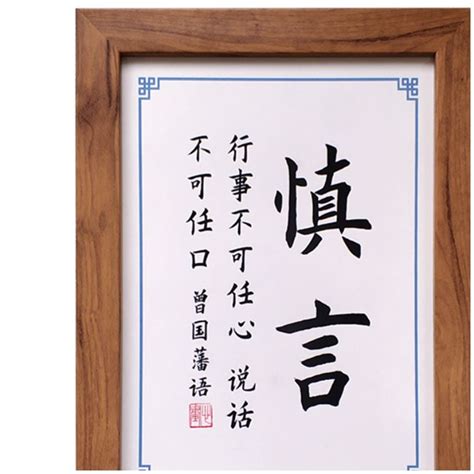 慎言
行事不可任心 说话
不可任口 曾国藩语